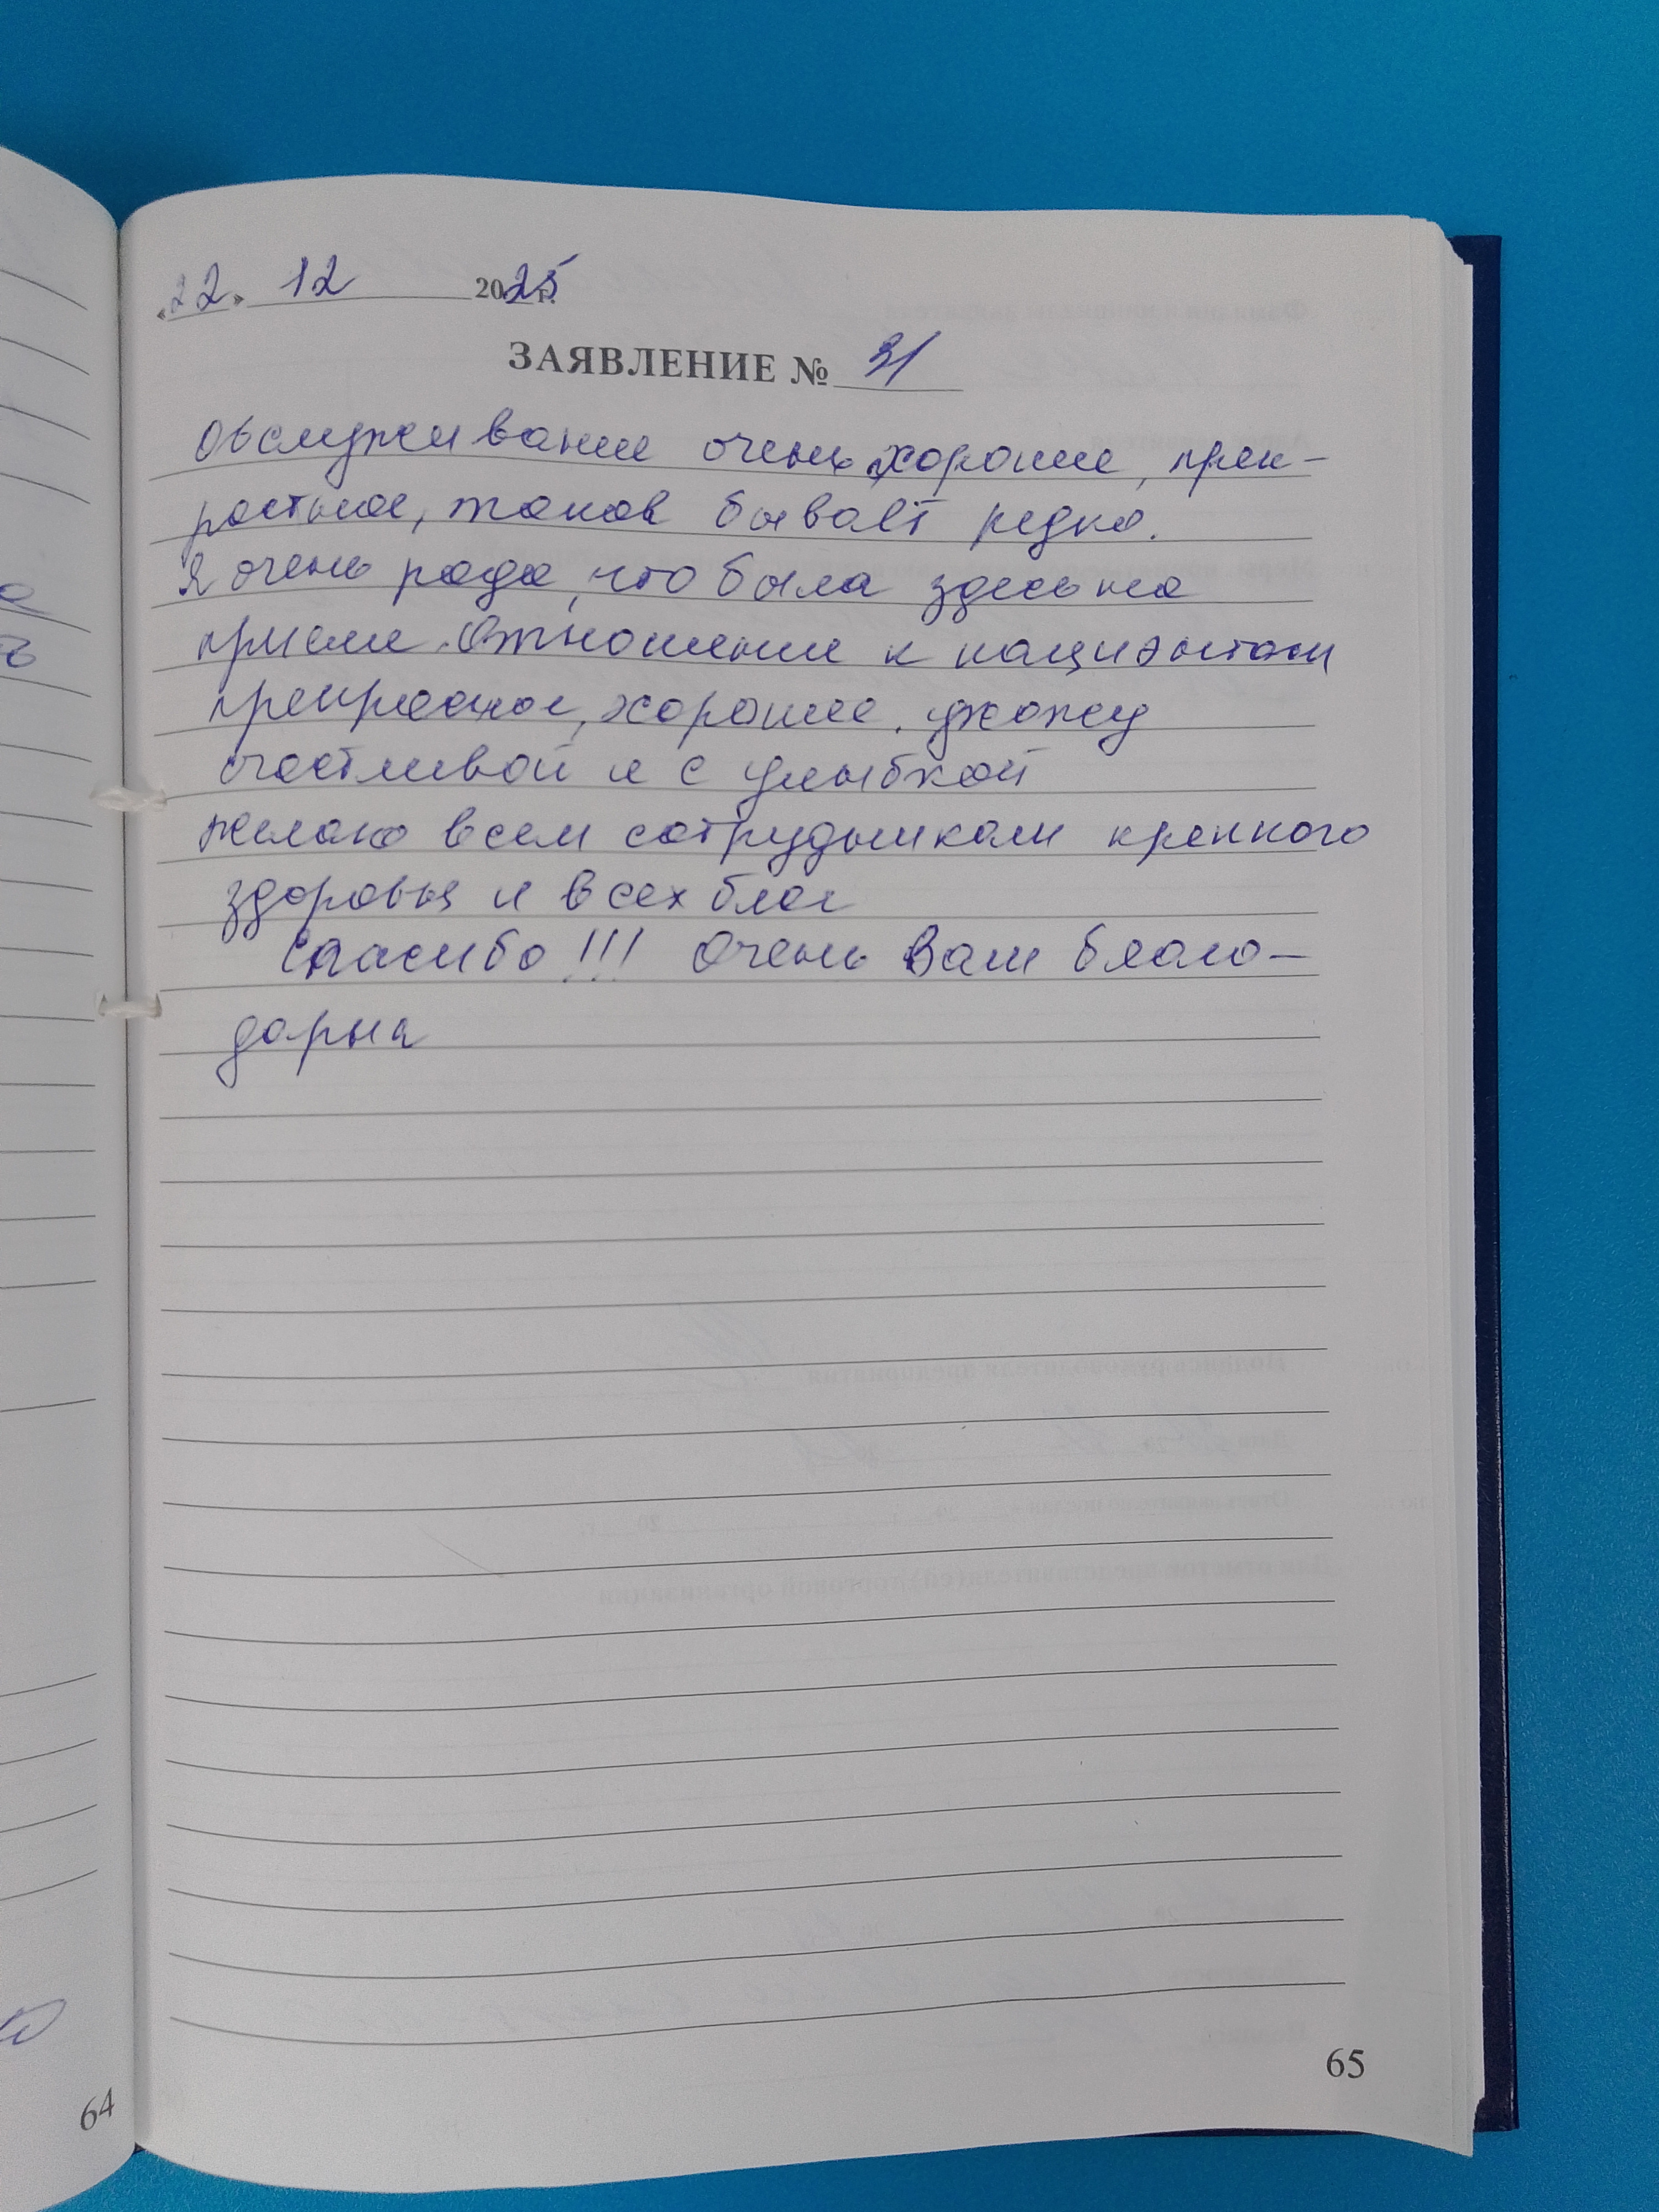 «22» 12 2025 г.
ЗАЯВЛЕНИЕ № 31
Обслуживание очень хорошие, прек-
растное, такое бывает редко.
Я очень рада, что была здесь на
приеме. Отношение к пациэнтам
прекрасное, хорошее. ухожу
счастливой и с улыбкой
желаю всем сотрудникам крепкого
здоровья и всех благ
Спасибо!!! Очень Вам благо-
дарна
65
64